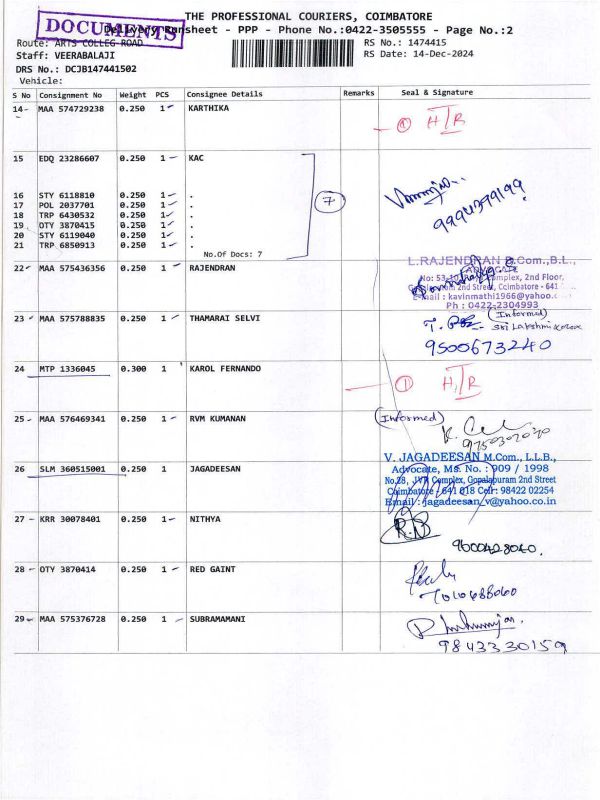 THE PROFESSIONAL COURIERS, COIMBATORE
DOCUMENTS
Delivery Runsheet - PPP - Phone No.:0422-3505555 - Page No.:2
Route: ARTS COLLEG ROAD
RS No.: 1474415
Staff: VEERABALAJI
RS Date: 14-Dec-2024
DRS No.: DCJB147441502
Vehicle:
S No Consignment No Weight PCS Consignee Details Remarks Seal & Signature
14 MAA 574729238 0.250 1 KARTHIKA
1 HIR
15 EDQ 23286607 0.250 1 KAC
16 STY 6118810 0.250 1 .
17 POL 2037701 0.250 1 .
18 TRP 6430532 0.250 1 .
19 OTY 3870415 0.250 1 .
20 STY 6119040 0.250 1 .
21 TRP 6850913 0.250 1 .
7
9994399199
No.Of Docs: 7
22 MAA 575436356 0.250 1 RAJENDRAN
L.RAJENDRAN B.Com.,B.L.,
ADVOCATE
No: 53, Complex, 2nd Floor,
2nd Street, Coimbatore - 641
E-mail : kavinmathi1966@yahoo.c
Ph : 0422-2304993
23 MAA 575788835 0.250 1 THAMARAI SELVI
(Informed)
Sri Lakshmi
9500673240
24 MTP 1336045 0.300 1 KAROL FERNANDO
1 HIR
25 MAA 576469341 0.250 1 RVM KUMANAN
(Informed)
26 SLM 360515001 0.250 1 JAGADEESAN
V. JAGADEESAN M.Com., L.L.B.,
Advocate, Ms. No. : 909 / 1998
No.28, JVR Complex, Gopalapuram 2nd Street
Coimbatore - 641 018 Cell: 98422 02254
Email : jagadeesan_v@yahoo.co.in
27 KRR 30078401 0.250 1 NITHYA
9600428040.
28 OTY 3870414 0.250 1 RED GAINT
7010688060
29 MAA 575376728 0.250 1 SUBRAMAMANI
9843330159